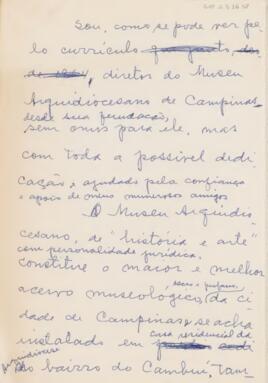 Sou, como se pode ver pe
lo currículo
diretor do Museu
Arquidiocesano de Campinas
desde sua fundação,
sem onus para ele, mas
com toda a possível dedi
cação, ajudado pela confiança
e apoio de meus numerosos amigos
O Museu Arquidio
cesano, de "história e arte"
com personalidade jurídica,
constitue o maior e melhor
sacro e profano,
acervo museologico da ci
dade de Campinas, e se acha
casa residencial da
instalado em
no bairro do Cambuí, Tam